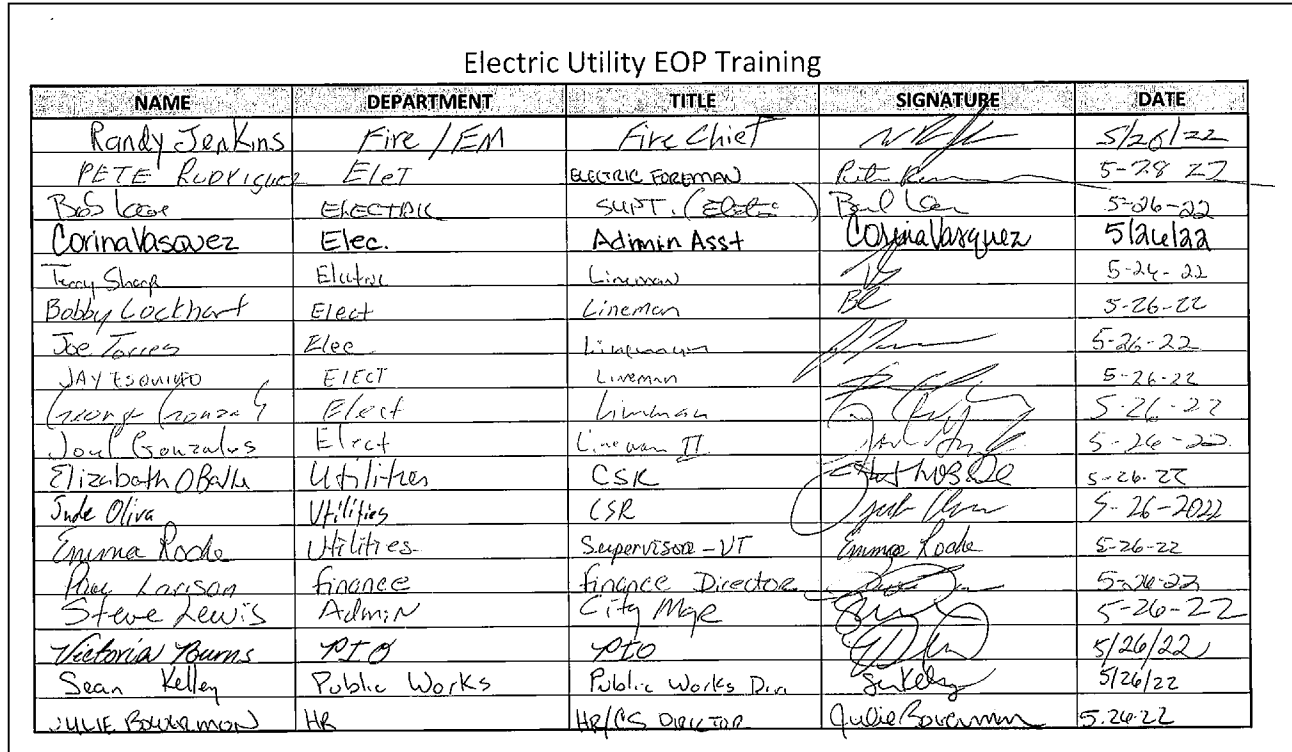 Electric Utility EOP Training
NAME DEPARTMENT TITLE SIGNATURE DATE
Randy Jenkins Fire / EM Fire Chief 5/26/22
PETE RUDRIGUEZ EleT ELECTRIC FOREMAN 5-28 22
Bob ELECTRIC SUPT. (Electric) 5-26-22
Corina Vasquez Elec. Admin Asst Corina Vasquez 5/26/22
Terry Sharp Electric Lineman 5-24-22
Bobby Lockhart Elect Lineman BL 5-26-22
Joe Torres Elec Lineman 5-26-22
JAY ElECT Lineman 5-26-22
Elect Lineman 5-26-22
Joel Gonzales Elect Lineman II 5-26-22
Elizabeth Utilities CSR 5-26-22
Jude Oliva Utilities CSR 5-26-2022
Emma Roche Utilities Supervisor - UT Emma Roche 5-26-22
Larison finance finance Director 5-26-22
Steve Lewis Admin City Mgr 5-26-22
Victoria Burns PIO PIO 5/26/22
Sean Kelley Public Works Public Works Dir 5/26/22
JULIE BOWERMON HR HR/CS DIRECTOR Julie Bowermon 5.26.22